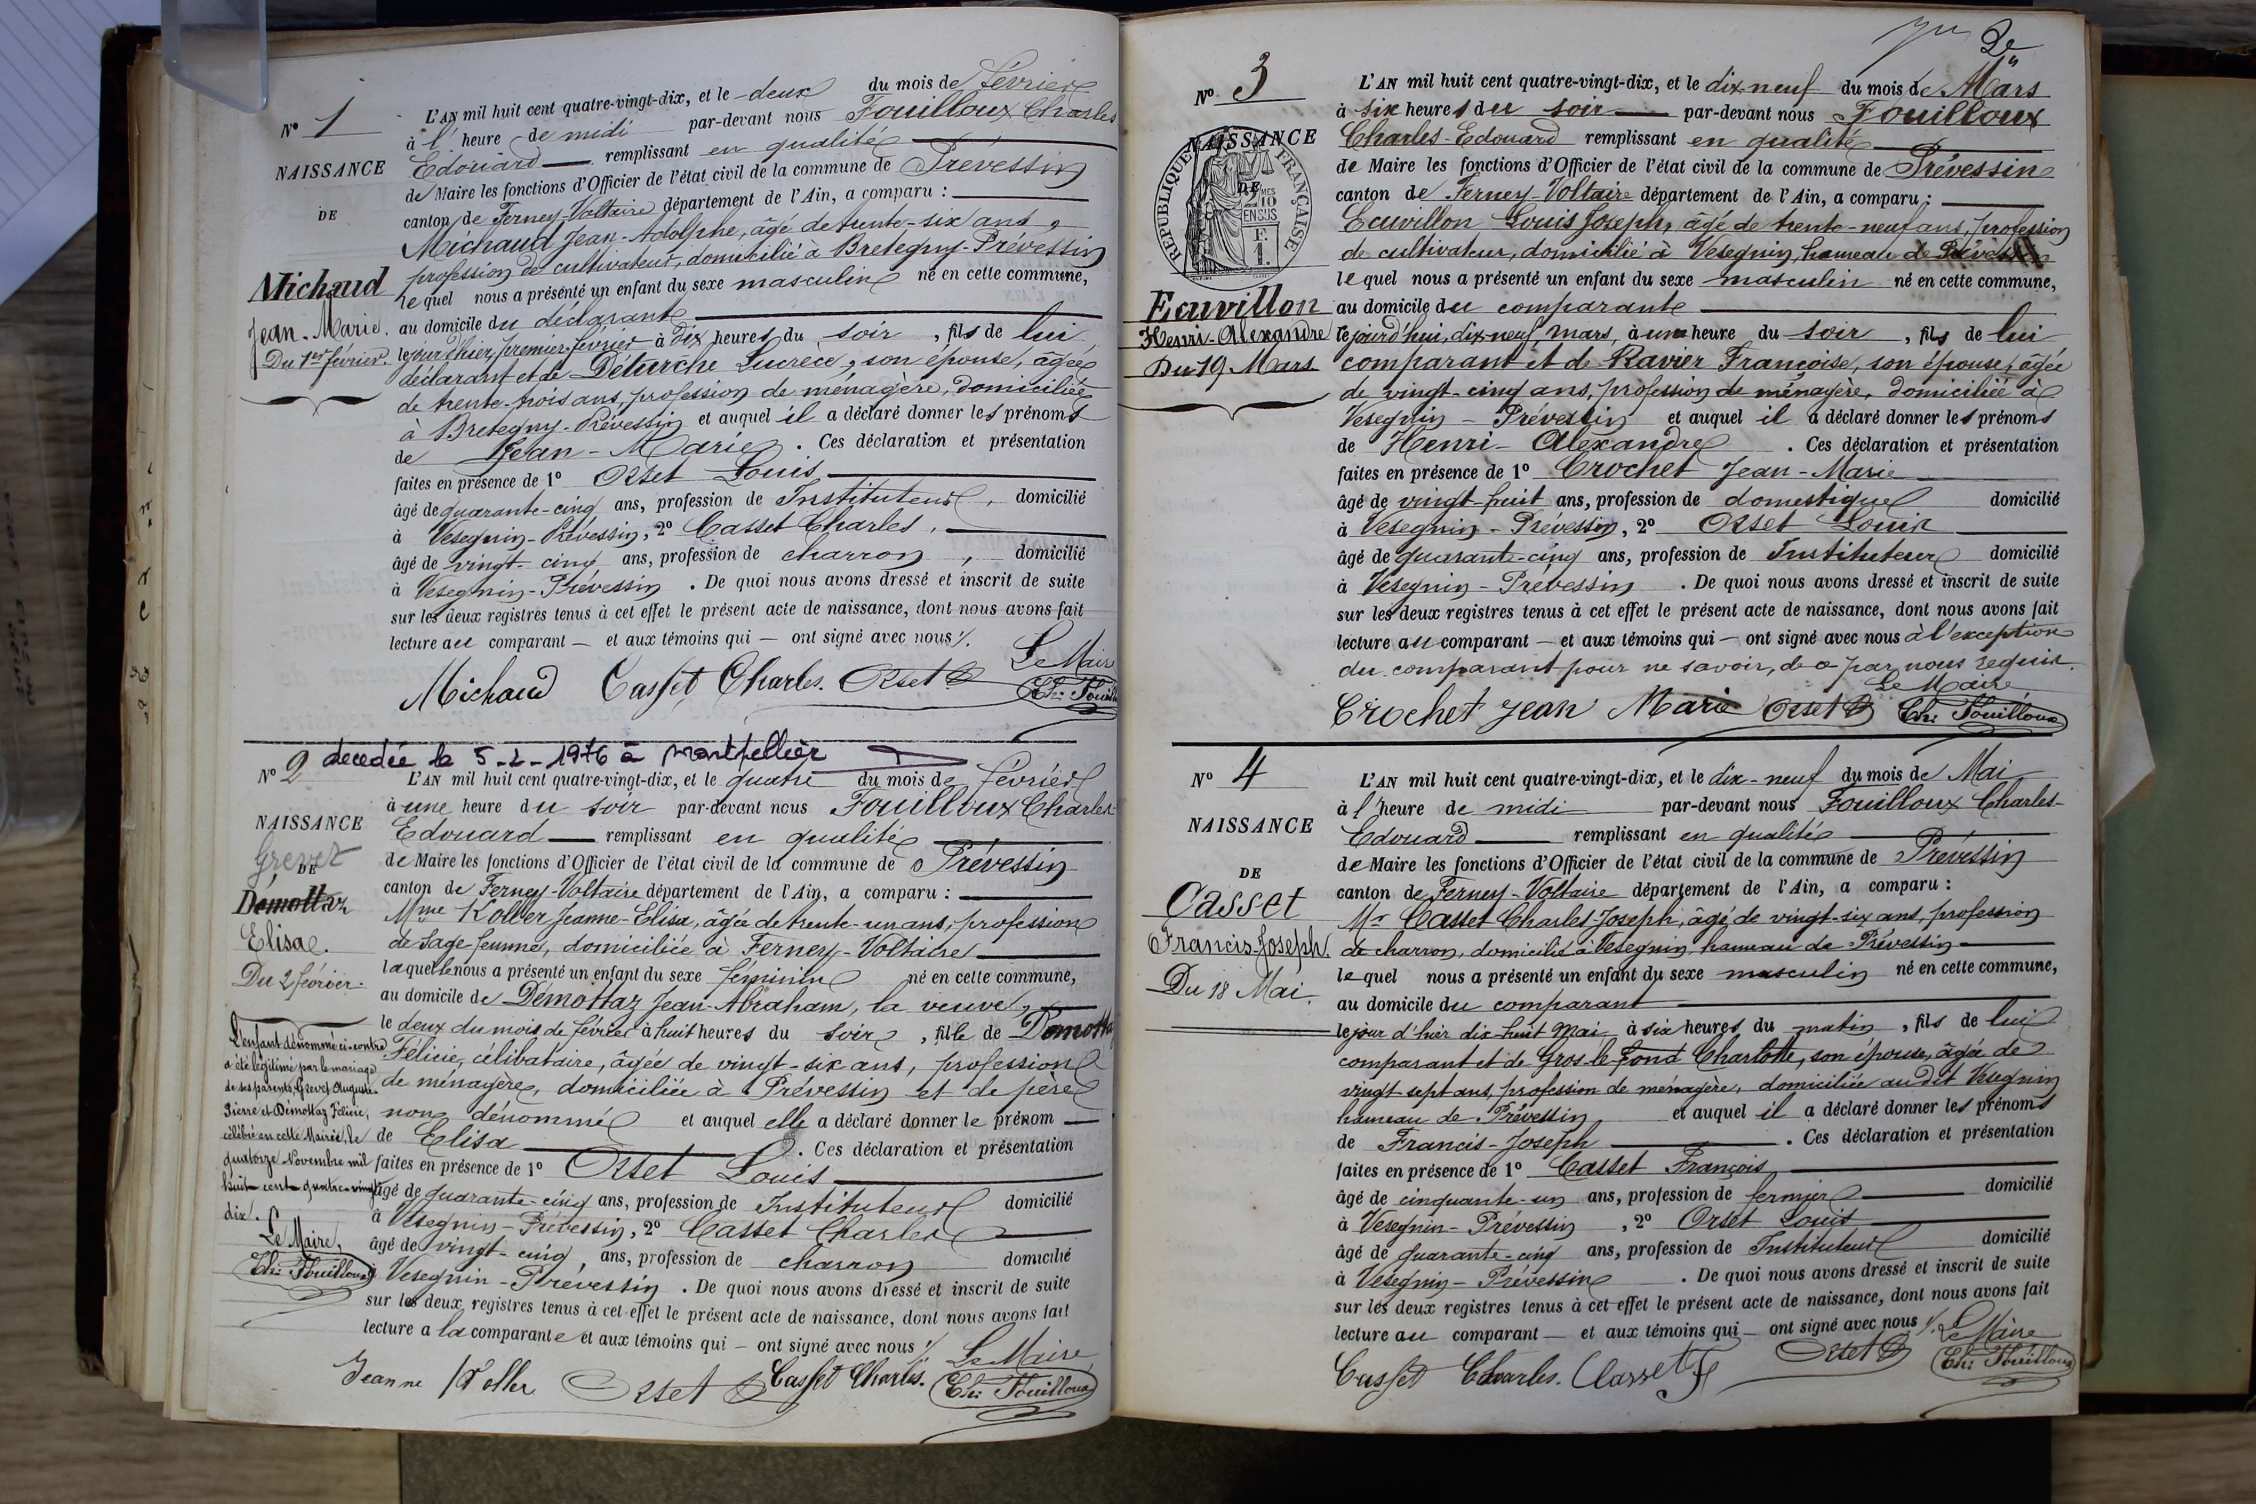 Nº 1
NAISSANCE
DE
Michaud
Jean-Marie.
Du 1er février.
L'AN mil huit cent quatre-vingt-dix, et le deux du mois de février
à l' heure de midi par-devant nous Fouilloux Charles
Edouard remplissant en qualité
de Maire les fonctions d'Officier de l'état civil de la commune de Prévessin
canton de Ferney-Voltaire département de l'Ain, a comparu :
Michaud Jean-Adolphe, âgé de trente-six ans,
profession de cultivateur, domicilié à Bretegny-Prévessin
lequel nous a présenté un enfant du sexe masculin né en cette commune,
au domicile du déclarant
le jour d'hier, premier février à dix heures du soir, fils de lui
déclarant et de Déturche Lucrèce, son épouse, âgée
de trente-trois ans, profession de ménagère, domiciliée
à Bretegny-Prévessin et auquel il a déclaré donner les prénoms
de Jean-Marie. Ces déclaration et présentation
faites en présence de 1º Orset Louis
âgé de quarante-cinq ans, profession de Instituteur, domicilié
à Vesegnin-Prévessin, 2º Casset Charles,
âgé de vingt-cinq ans, profession de charron, domicilié
à Vesegnin-Prévessin. De quoi nous avons dressé et inscrit de suite
sur les deux registres tenus à cet effet le présent acte de naissance, dont nous avons fait
lecture au comparant — et aux témoins qui — ont signé avec nous ./.
Le Maire
Michaud Casset Charles. Orset Ch: Fouill
decedée le 5-2-1976 à Montpellier
Nº 2
NAISSANCE
Grevet
DE
Démottaz
Elisa.
Du 2 février.
L'enfant dénommé ci-contre
a été légitimé par le mariage
de ses parents, Grevet Auguste
Pierre et Démottaz Félicie,
célébré en cette Mairie, le
quatorze Novembre mil
huit cent quatre-vingt
dix.
Le Maire,
Ch: Fouilloux
L'AN mil huit cent quatre-vingt-dix, et le quatre du mois de février
à une heure du soir par-devant nous Fouilloux Charles
Edouard remplissant en qualité
de Maire les fonctions d'Officier de l'état civil de la commune de Prévessin
canton de Ferney-Voltaire département de l'Ain, a comparu :
Mme Koller Jeanne-Elisa, âgée de trente-un ans, profession
de Sage-femme, domiciliée à Ferney-Voltaire
laquelle nous a présenté un enfant du sexe féminin né en cette commune,
au domicile de Démottaz Jean-Abraham, la veuve,
le deux du mois de février à huit heures du soir, fille de Démotta
Félicie, célibataire, âgée de vingt-six ans, profession
de ménagère, domiciliée à Prévessin et de père
non dénommé et auquel elle a déclaré donner le prénom
de Elisa. Ces déclaration et présentation
faites en présence de 1º Orset Louis
âgé de quarante-cinq ans, profession de Instituteur domicilié
à Vesegnin-Prévessin, 2º Casset Charles
âgé de vingt-cinq ans, profession de charron domicilié
Vesegnin-Prévessin. De quoi nous avons dressé et inscrit de suite
sur les deux registres tenus à cet effet le présent acte de naissance, dont nous avons fait
lecture a la comparante et aux témoins qui — ont signé avec nous ./.
Le Maire,
Jeanne Koller Orset Casset Charles. Ch: Fouilloux
2e
Nº 3
NAISSANCE
DE
REPUBLIQUE FRANÇAISE
Ecuvillon
Henri-Alexandre
Du 19 Mars
L'AN mil huit cent quatre-vingt-dix, et le dix-neuf du mois de Mars
à six heures du soir par-devant nous Fouilloux
Charles-Edouard remplissant en qualité
de Maire les fonctions d'Officier de l'état civil de la commune de Prévessin
canton de Ferney-Voltaire département de l'Ain, a comparu :
Ecuvillon Louis Joseph, âgé de trente-neuf ans, profession
de cultivateur, domicilié à Vesegnin, hameau de Prévessin
lequel nous a présenté un enfant du sexe masculin né en cette commune,
au domicile du comparant
lejourd'hui, dix-neuf mars, à une heure du soir, fils de lui
comparant et de Ravier Françoise, son épouse, âgée
de vingt-cinq ans, profession de ménagère, domiciliée à
Vesegnin-Prévessin et auquel il a déclaré donner les prénoms
de Henri-Alexandre. Ces déclaration et présentation
faites en présence de 1º Crochet Jean-Marie
âgé de vingt-huit ans, profession de domestique domicilié
à Vesegnin-Prévessin, 2º Orset Louis
âgé de quarante-cinq ans, profession de Instituteur domicilié
à Vesegnin-Prévessin. De quoi nous avons dressé et inscrit de suite
sur les deux registres tenus à cet effet le présent acte de naissance, dont nous avons fait
lecture au comparant — et aux témoins qui — ont signé avec nous à l'exception
du comparant pour ne savoir, de ce par nous requis.
Le Maire
Crochet Jean Marie Orset Ch: Fouilloux
Nº 4
NAISSANCE
DE
Casset
Francis-Joseph.
Du 18 Mai.
L'AN mil huit cent quatre-vingt-dix, et le dix-neuf du mois de Mai
à l'heure de midi par-devant nous Fouilloux Charles-
Edouard remplissant en qualité
de Maire les fonctions d'Officier de l'état civil de la commune de Prévessin
canton de Ferney-Voltaire département de l'Ain, a comparu :
Mr Casset Charles-Joseph, âgé de vingt-six ans, profession
de charron, domicilié à Vesegnin hameau de Prévessin
lequel nous a présenté un enfant du sexe masculin né en cette commune,
au domicile du comparant
le jour d'hier dix-huit Mai à six heures du matin, fils de lui
comparant et de Gros-le-fond Charlotte, son épouse, âgée de
vingt sept ans, profession de ménagère, domiciliée au dit Vesegnin
hameau de Prévessin et auquel il a déclaré donner les prénoms
de Francis-Joseph. Ces déclaration et présentation
faites en présence de 1º Casset François
âgé de cinquante-un ans, profession de fermier domicilié
à Vesegnin-Prévessin, 2º Orset Louis
âgé de quarante-cinq ans, profession de Instituteur domicilié
à Vesegnin-Prévessin. De quoi nous avons dressé et inscrit de suite
sur les deux registres tenus à cet effet le présent acte de naissance, dont nous avons fait
lecture au comparant — et aux témoins qui — ont signé avec nous ./.
Le Maire
Casset Charles. Casset F Orset Ch: Fouilloux